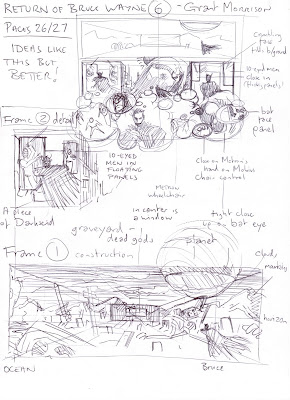 RETURN OF BRUCE WAYNE 6 - Grant Morrison
PAGES 26/27
IDEAS LIKE
THIS BUT
BETTER!
crumbling
face
10-eyed men
close in
panels!
bat
face
panel
Frame 2 detail
10-EYED
MEN IN
FLOATING
PANELS
Close on Metron's
hand on Mobius
Chair control
METRON
wheelchair
A piece
of Darkseid
in center is
a window
tight close
up on bat eye
graveyard -
dead gods
planet
Frame 1 construction
clouds
horizon
OCEAN
Bruce